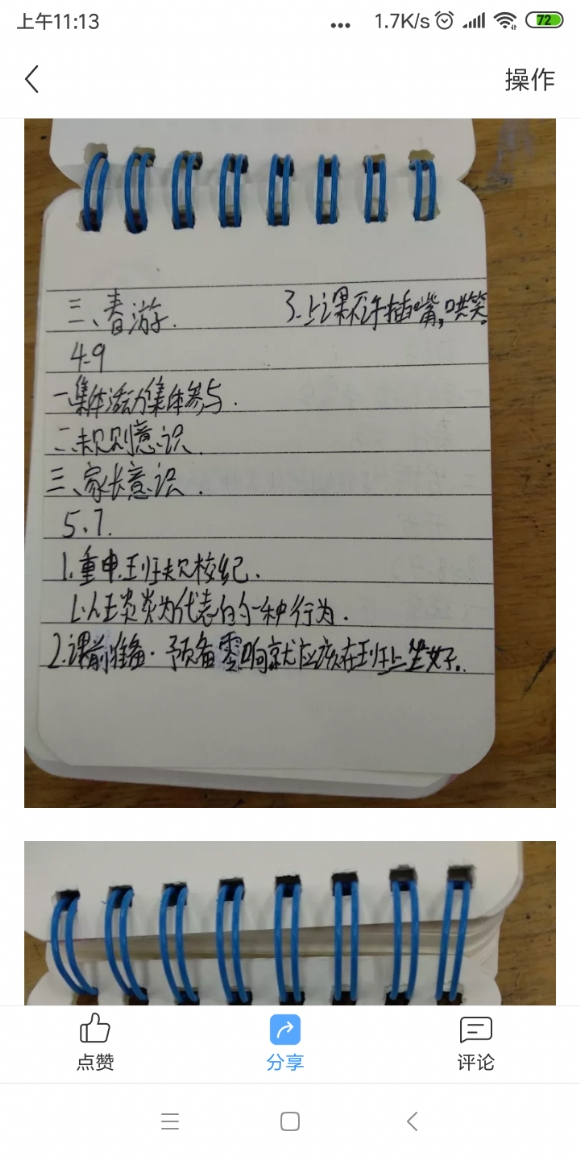 上午11:13
... 1.7K/s 72
操作
三、春游. 3.上课不许插嘴,哄笑。
4.9
一.集体活动集体参与.
二.规则意识.
三、家长意识.
5.7.
1.重申班规校纪.
以 为代表的一种行为.
2.课前准备.预备零响就应该在班上坐好.
点赞
分享
评论